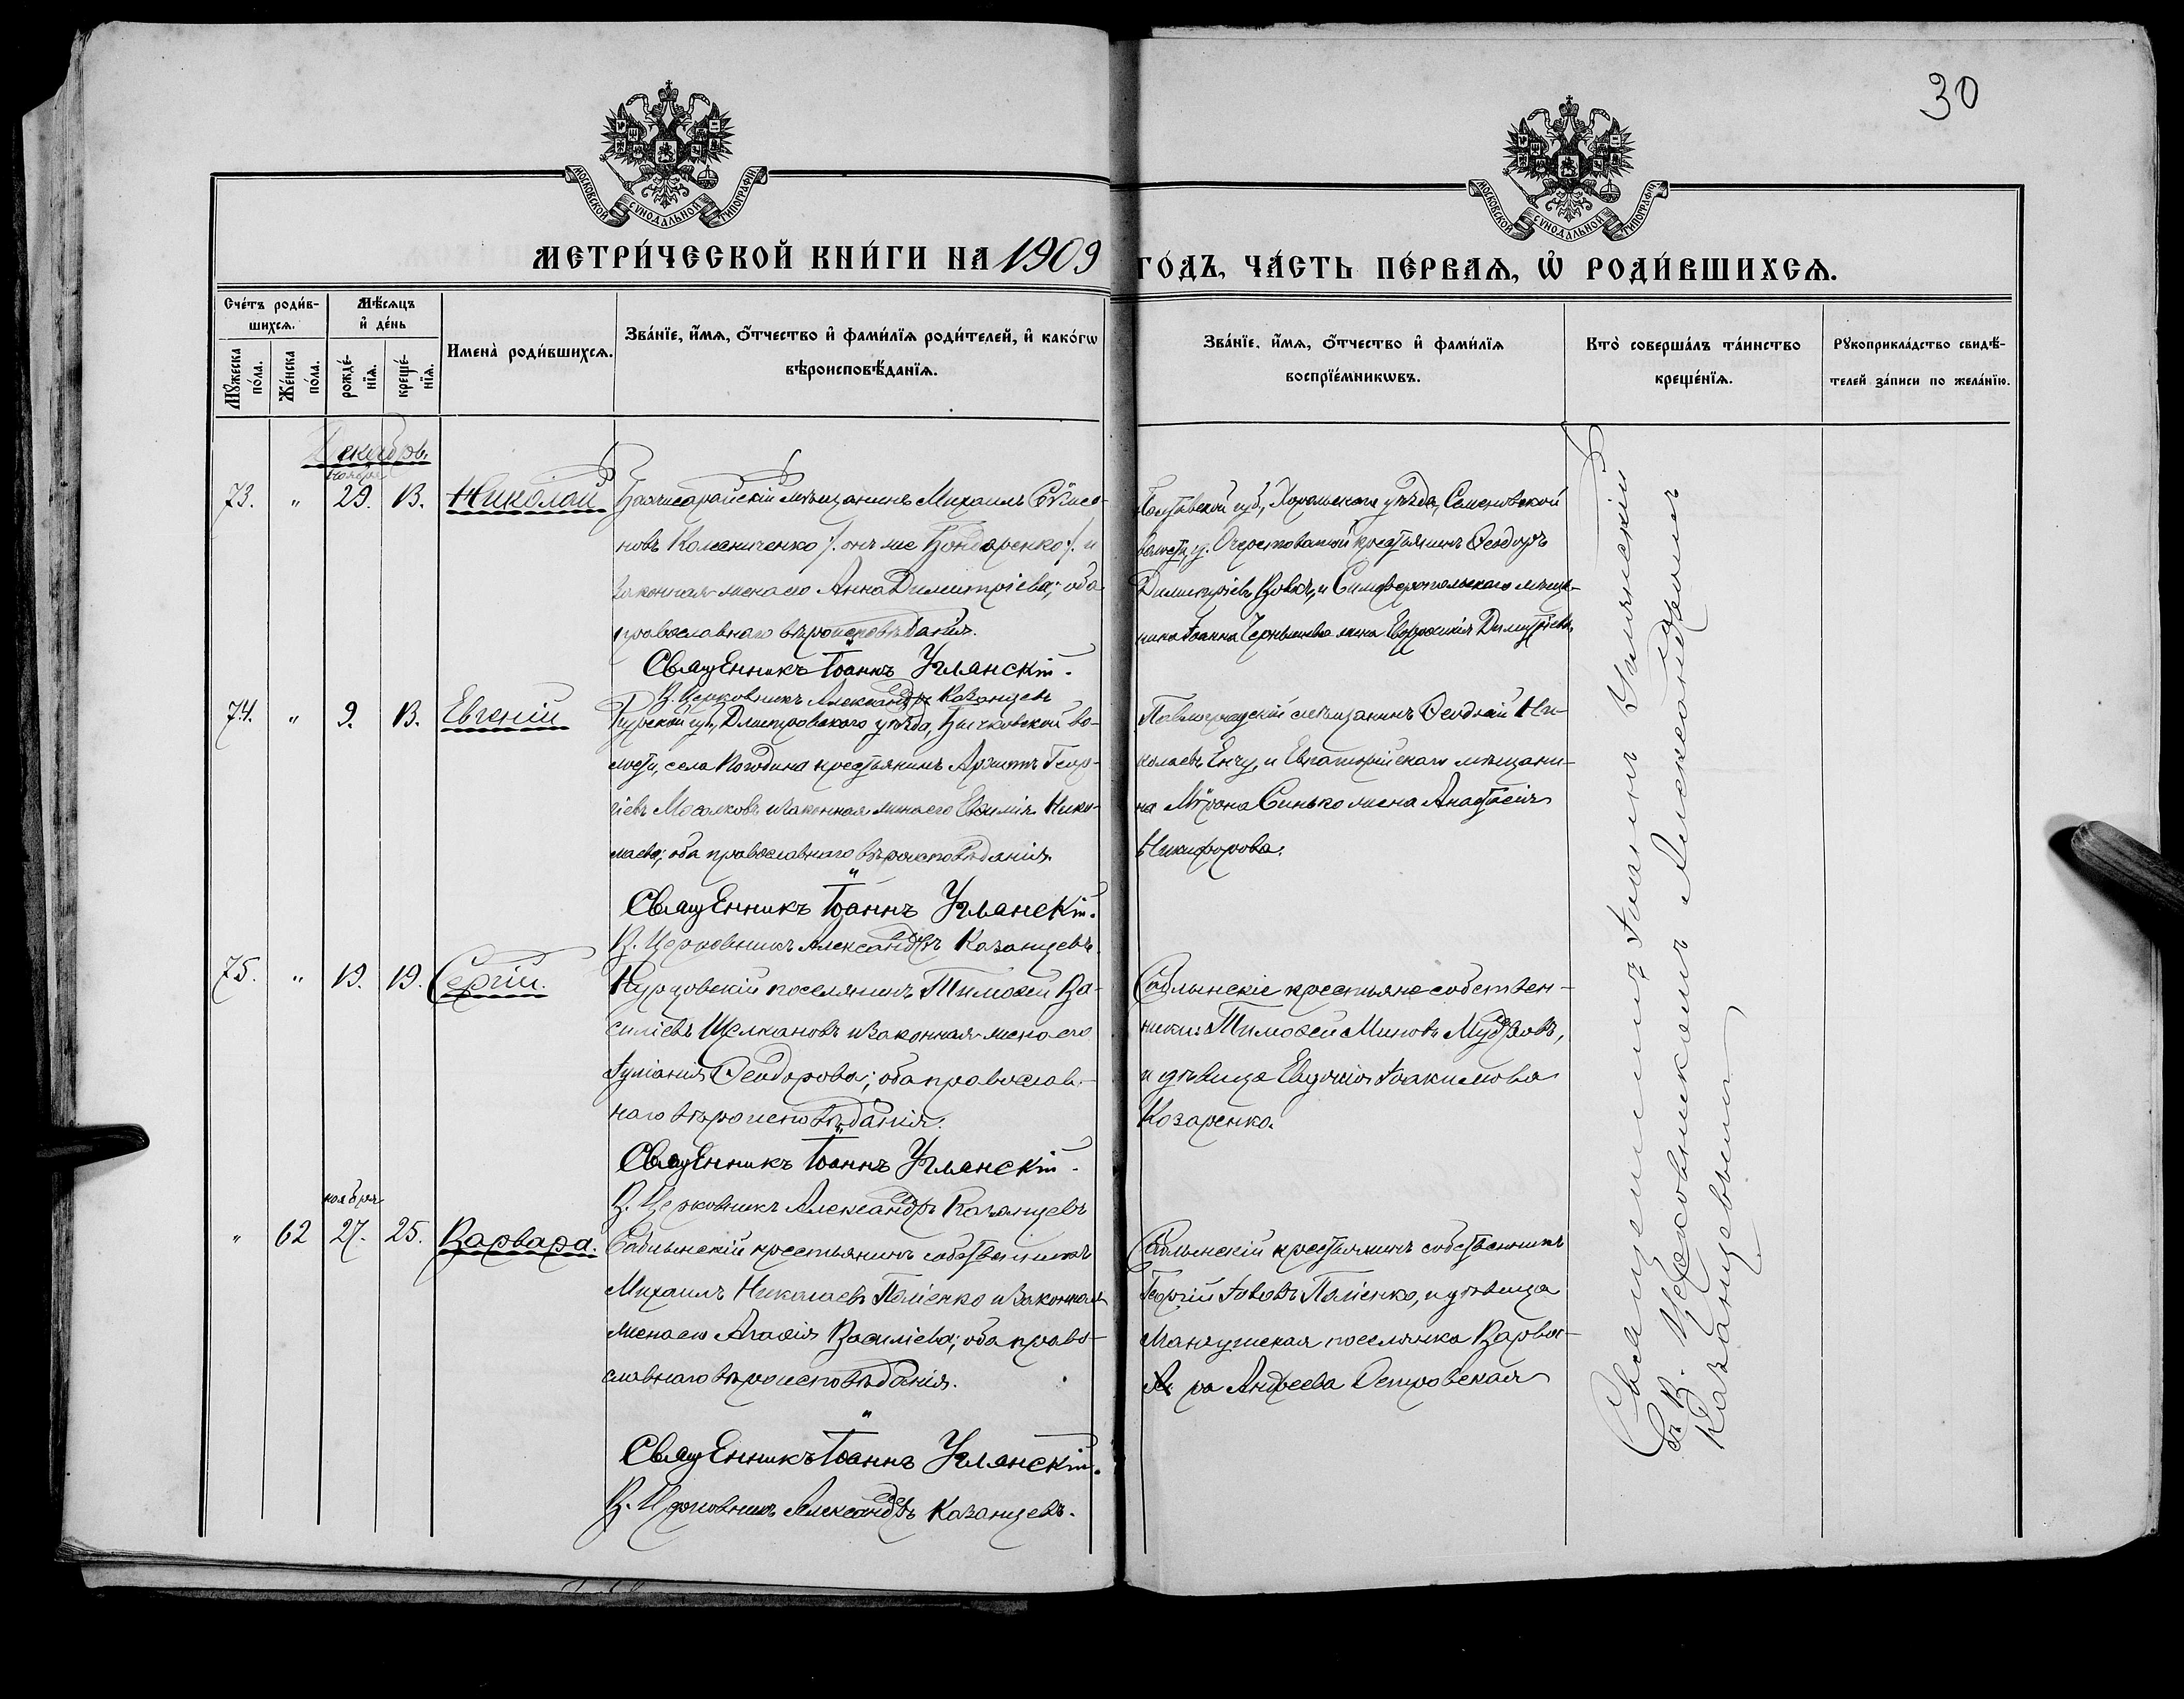 30
МОСКОВСКОЙ СУНОДАЛЬНОЙ ТИПОГРАФІИ
МОСКОВСКОЙ СУНОДАЛЬНОЙ ТИПОГРАФІИ
МЕТРИ́ЧЕСКОЙ КНИ́ГИ НА 1909
ГО́ДЪ, ЧА́СТЬ ПЕ́РВАѦ, Ѡ҆ РОДИ́ВШИХСѦ.
Сче́тъ роди́в-
шихсѧ.
Мꙋ́жеска по́ла.
Же́нска по́ла.
Мѣ́сѧцъ
и҆ де́нь
рожде́-нїѧ.
креще́-нїѧ.
Имена̀ роди́вшихсѧ.
Зва́нїе, и҆́мѧ, ѻ҆́тчество и҆ фами́лїѧ роди́телей, и҆ како́гѡ
вѣроисповѣ́данїѧ.
Зва́нїе, и҆́мѧ, ѻ҆́тчество и҆ фами́лїѧ
воспрїе́мникѡвъ.
Кто̀ соверша́лъ та́инство
креще́нїѧ.
Рꙋкоприкла́дство свидѣ́-
телей за́писи по жела́нїю.
Декабрь.
ноября
73. " 29. 13. Николай
Бахчисарайскій мѣщанинъ Михаилъ
новъ Колесниченко /: онъ же Бондаренко :/ и
законная жена его Анна Димитріева; оба
православнаго вѣроисповѣданія.
Священникъ Іоаннъ Углянскій.
В. Церковникъ Александръ Казанцевъ
Полтавской губ., Хорольскаго уѣзда, Семеновской
волости, крестьянинъ Ѳеодоръ
Димитріевъ и Симферопольскаго мѣща-
нина Іоанна Чернышева жена Евфросинія Димитріева.
74. " 9. 13. Евгеній
Курской губ., Дмитровского уѣзда, во-
лости, села Погодина крестьянинъ Геор-
гіевъ Мосолковъ и законная жена его Евфимія Нико-
лаева; оба православнаго вѣроисповѣданія.
Священникъ Іоаннъ Углянскій.
В. Церковникъ Александръ Казанцевъ.
Павлоградскій мѣщанинъ Ни-
колаевъ и Евпаторійскаго мѣщани-
на Мѵрона Синько жена Анастасія
Никифорова.
75. " 13. 19. Сергій.
Курцовскій поселянинъ Тимоѳей Ва-
силіевъ Щелкановъ и законная жена его
Іуліанія Ѳеодорова; оба православ-
наго вѣроисповѣданія.
Священникъ Іоаннъ Углянскій.
В. Церковникъ Александръ Казанцевъ
Саблынскіе крестьяне собствен-
ники: Тимоѳей Миновъ Мудровъ,
и дѣвица Евдокія Іоакимова
Козаренко.
ноября
" 62 27. 25. Варвара.
Саблынскій крестьянинъ собственникъ
Михаилъ Николаевъ Паліенко и законная
жена его Агаѳія Василіева; оба право-
славнаго вѣроисповѣданія.
Священникъ Іоаннъ Углянскій.
В. Церковникъ Александръ Казанцевъ.
Саблынскій крестьянинъ собственникъ
Георгій Іововъ Паліенко, и дѣвица
Мангушская поселянка Варва-
ра Андреева Островская
Священникъ Іоаннъ Углянскій
съ В. Церковникомъ Александромъ
Казанцевымъ